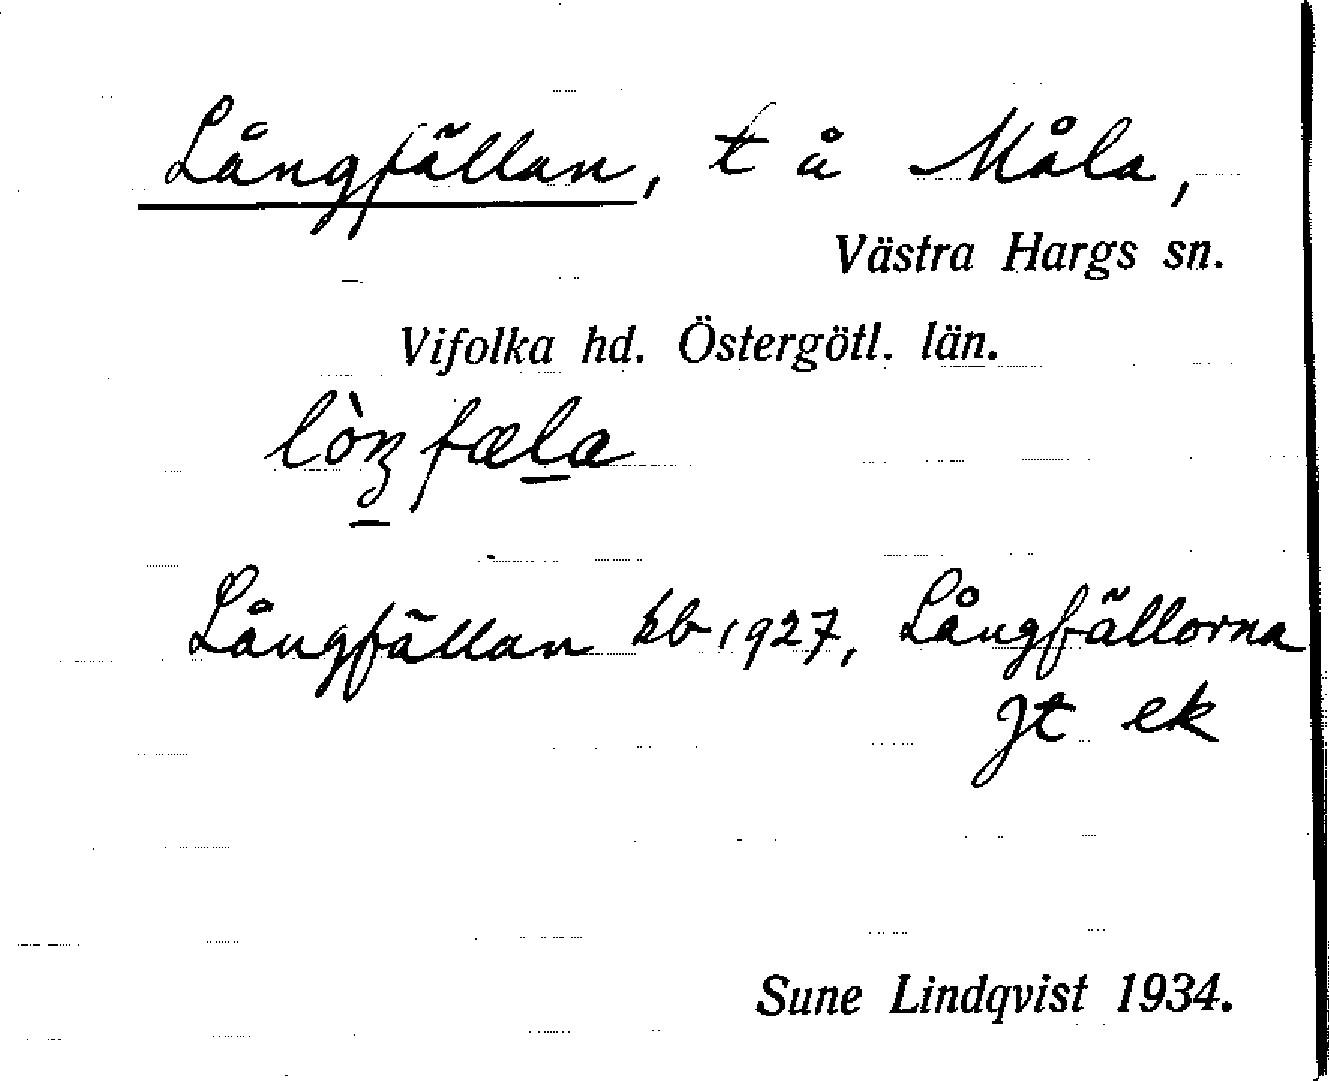 Långfällan, t å Måla,
Västra Hargs sn.
Vifolka hd. Östergötl. län.
lòŋfæla
Långfällan kb 1927, Långfällorna
jt ek
Sune Lindqvist 1934.